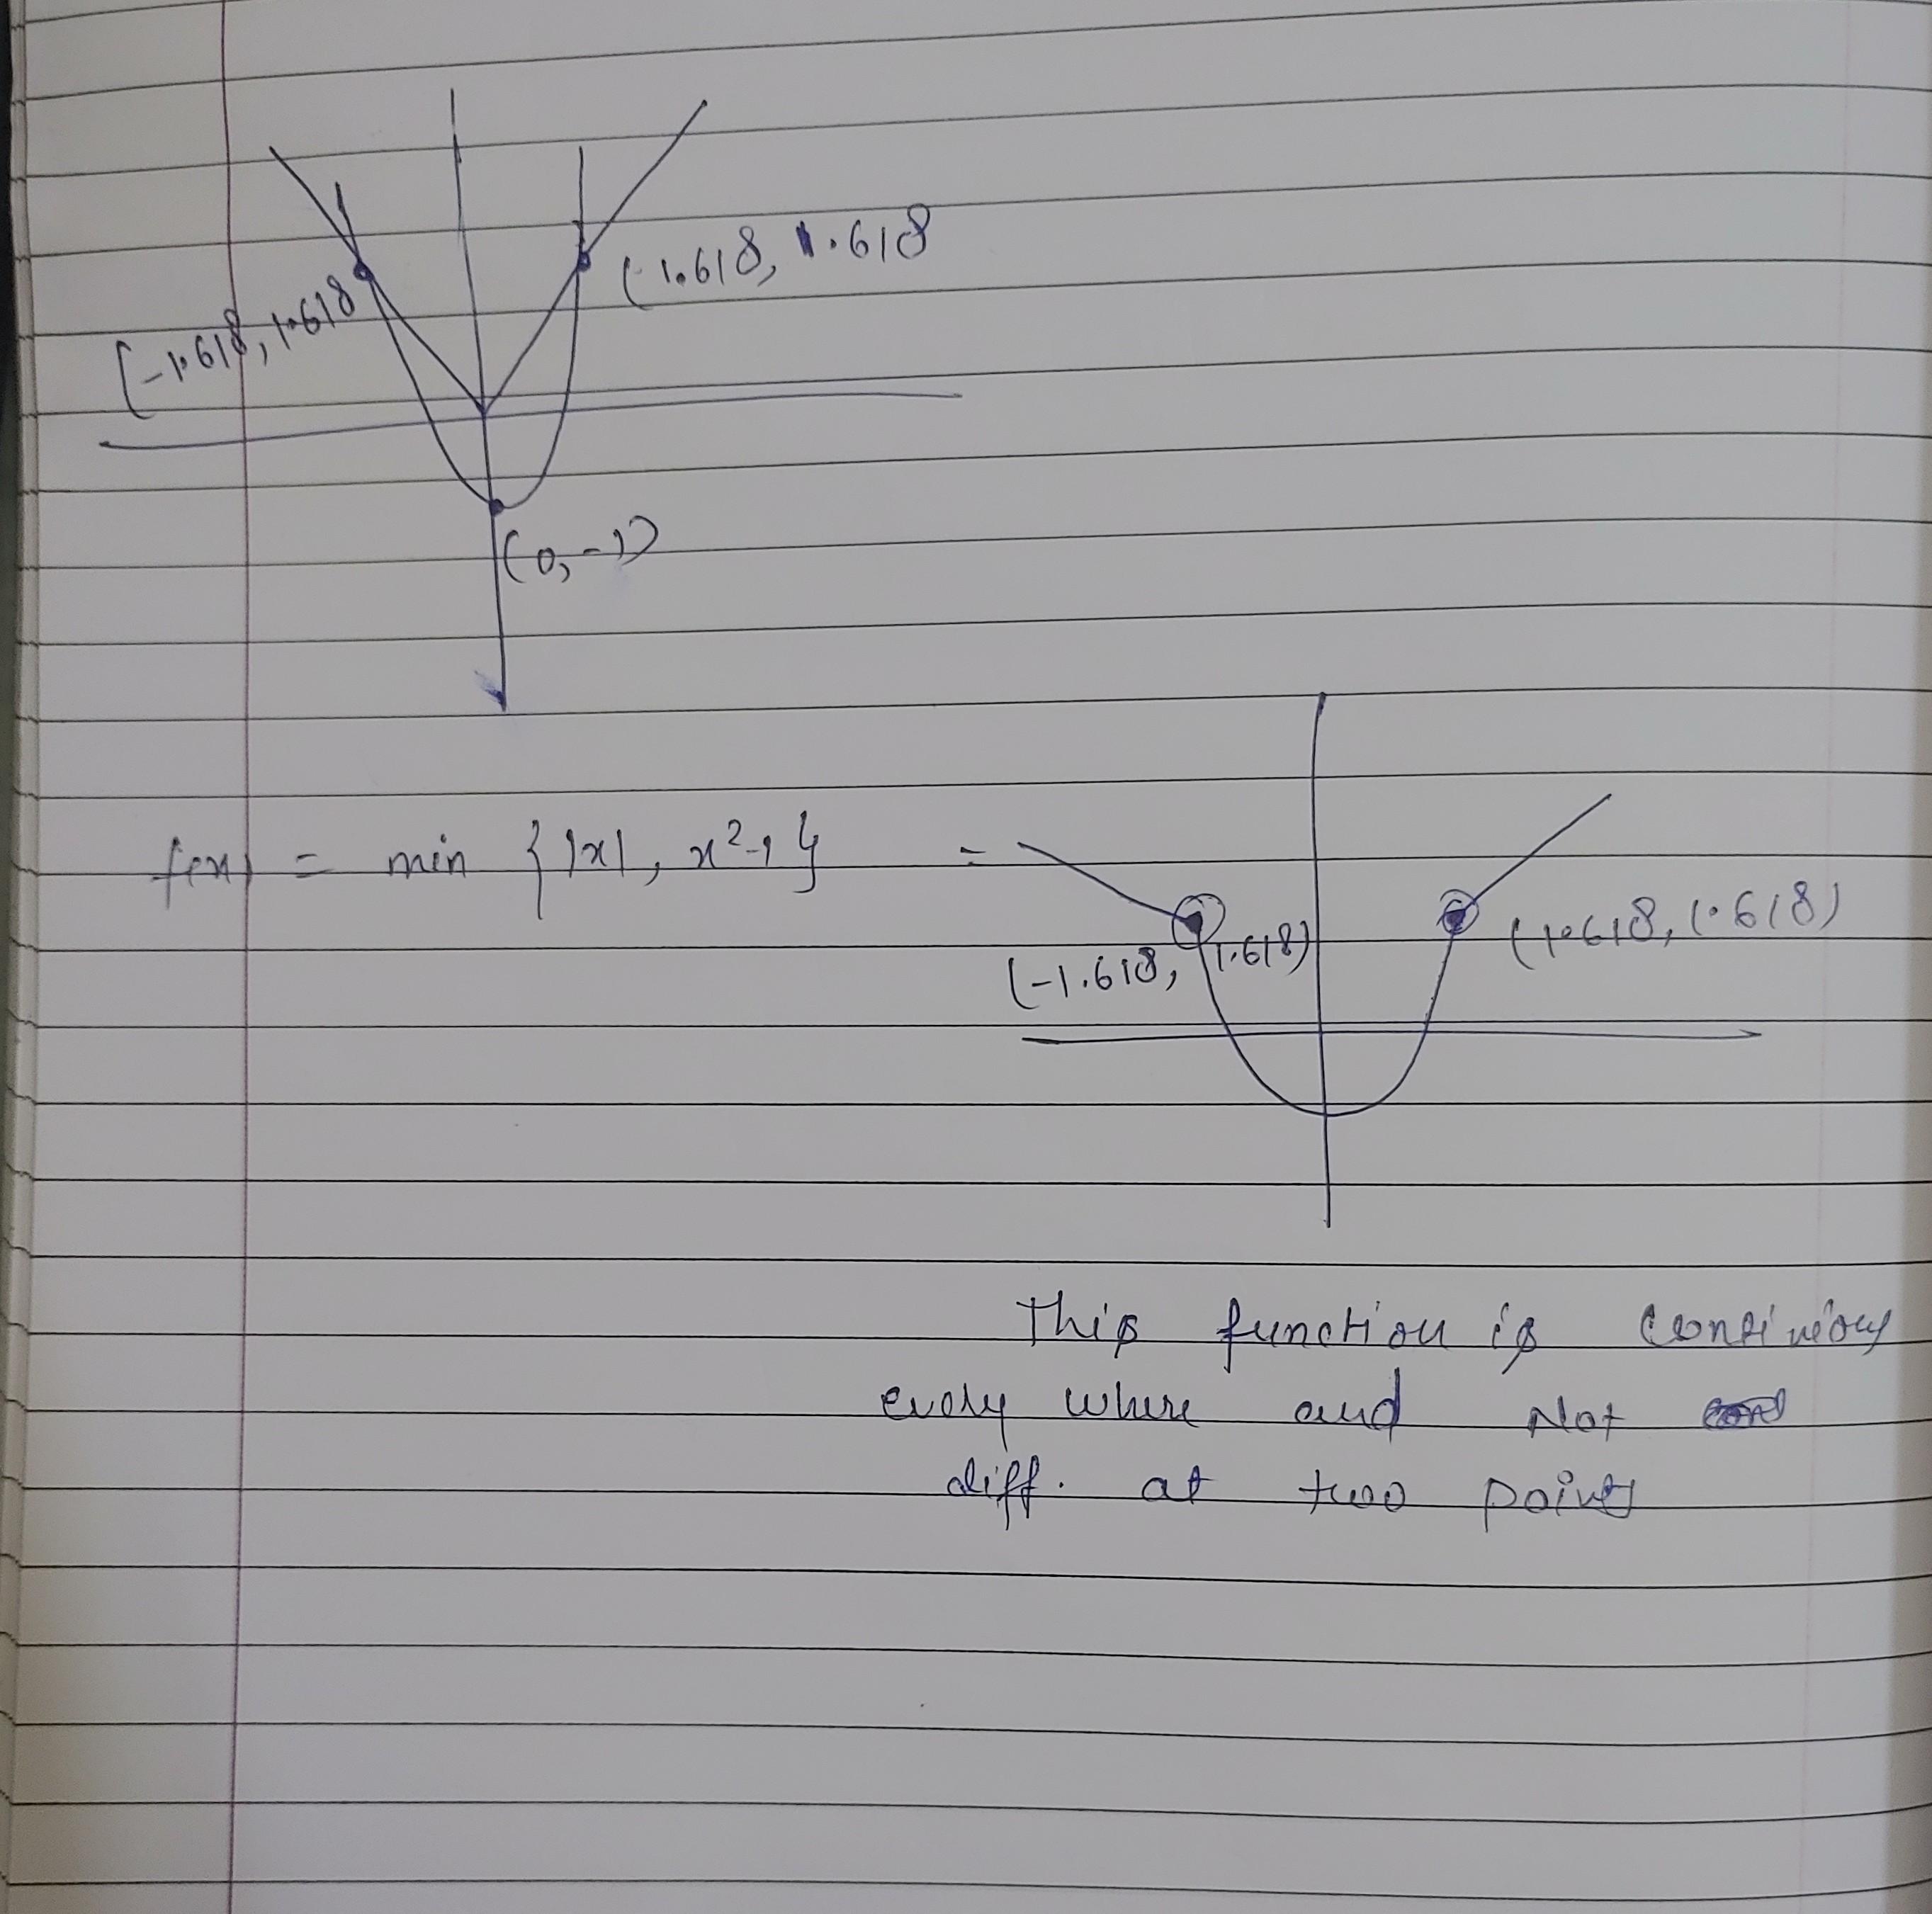 (-1.618, 1.618
(1.618, 1.618
(0, -1)
f(x) = min {|x|, x²-1} =
(-1.618, 1.618)
(1.618, 1.618)
This function is
every where and Not
diff. at two points